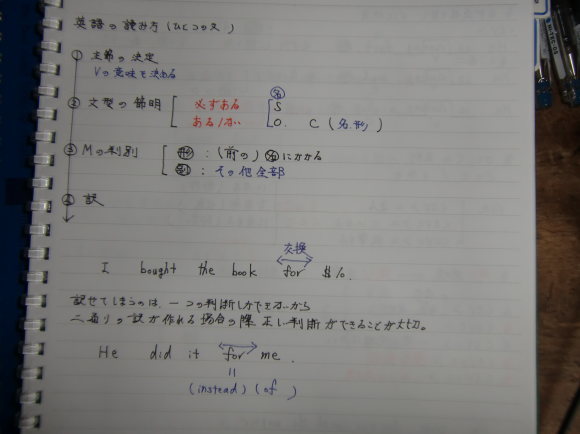 英語の読み方(ひとつの文)
① 主節の決定
Vの意味を決める
② 文型の節明 必ずある 名 S
あるノない O. C (名.形)
③ Mの判別 形 : (前の) 名にかかる
副 : その他全部
④ 訳
交換
I bought the book for $10.
訳せてしまうのは、一つの判断しかできないから
二通りの訳が作れる場合の際 正しい判断ができることが大切。
He did it for me.
=
(instead) (of )